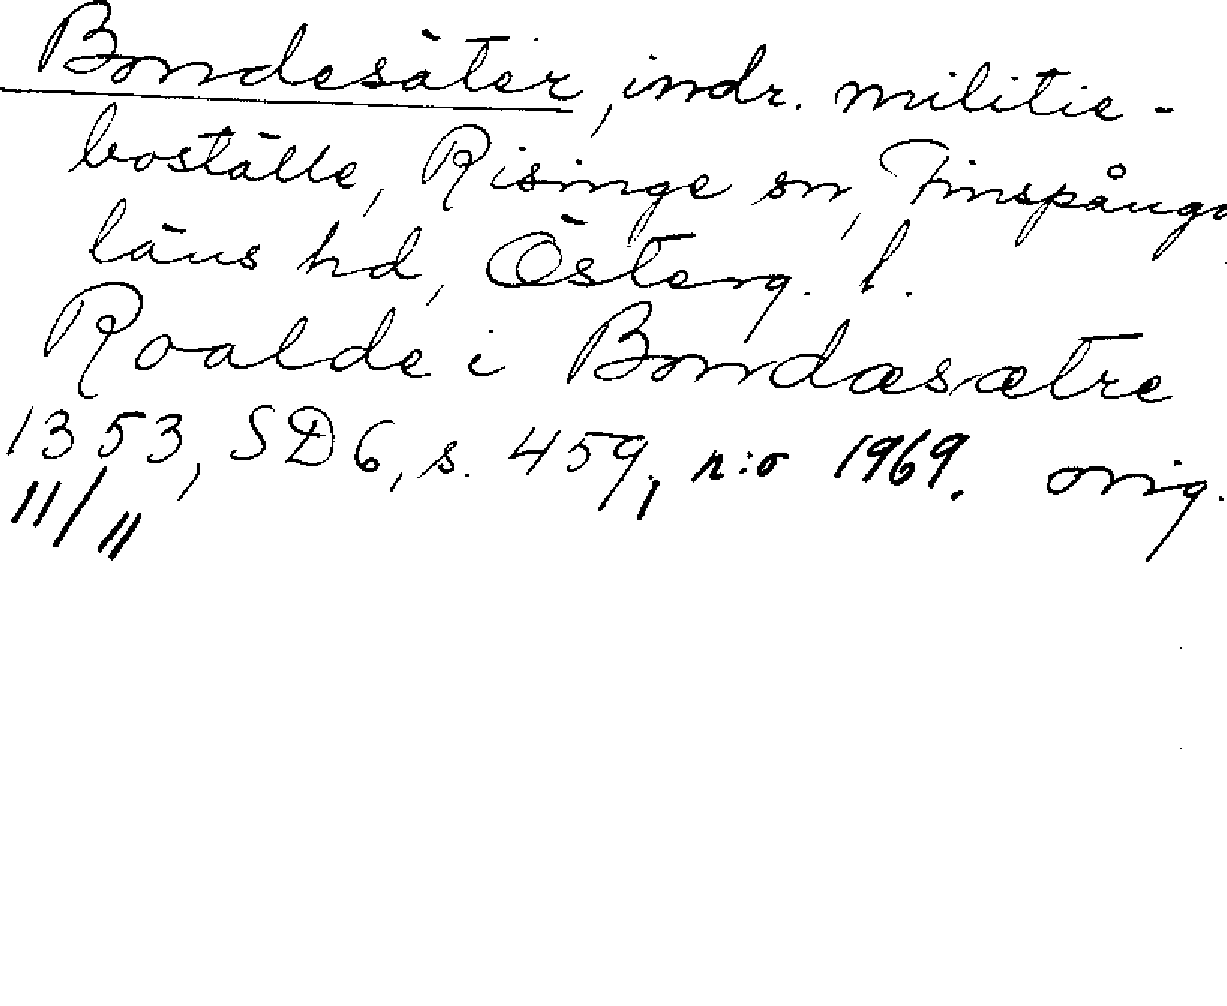 Bondesäter, indr. militie-
boställe, Risinge sn, Finspånga
läns hd, Österg. l.
Roalde i Bondæsætre
1353, SD 6, s. 459, n:o 1969. orig.
11/11